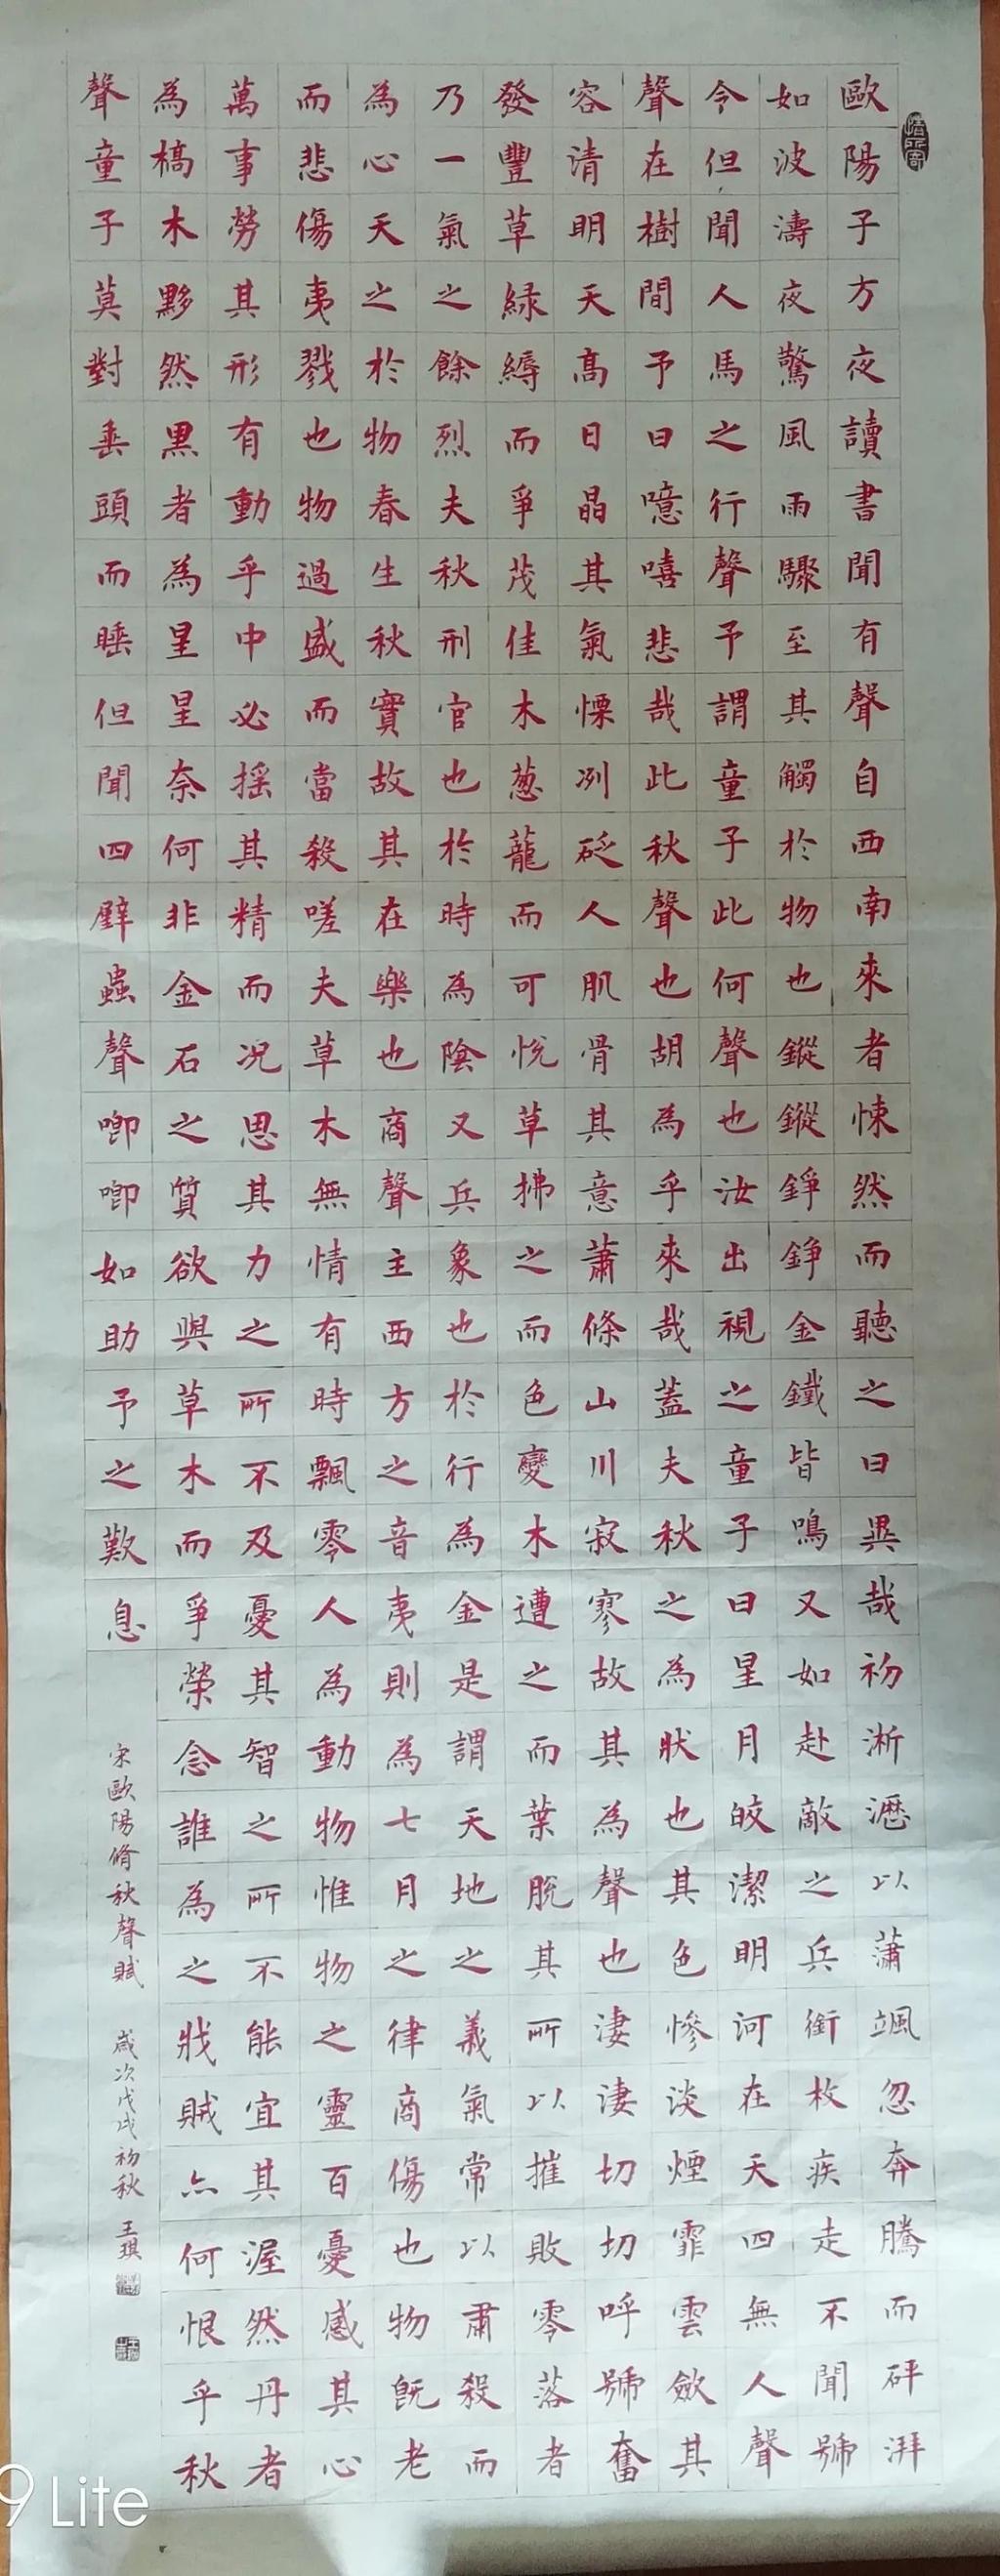 歐陽子方夜讀書聞有聲自西南來者悚然而聽之曰異哉初淅瀝以蕭颯忽奔騰而砰湃
如波濤夜驚風雨驟至其觸於物也鏦鏦錚錚金鐵皆鳴又如赴敵之兵銜枚疾走不聞號
令但聞人馬之行聲予謂童子此何聲也汝出視之童子曰星月皎潔明河在天四無人聲
聲在樹間予曰噫嘻悲哉此秋聲也胡為乎來哉蓋夫秋之為狀也其色慘淡煙霏雲斂其
容清明天高日晶其氣慄冽砭人肌骨其意蕭條山川寂寥故其為聲也淒淒切切呼號奮
發豐草緑縟而爭茂佳木葱蘢而可悅草拂之而色變木遭之而葉脫其所以摧敗零落者
乃一氣之餘烈夫秋刑官也於時為陰又兵象也於行為金是謂天地之義氣常以肅殺而
為心天之於物春生秋實故其在樂也商聲主西方之音夷則為七月之律商傷也物既老
而悲傷夷戮也物過盛而當殺嗟夫草木無情有時飄零人為動物惟物之靈百憂感其心
萬事勞其形有動乎中必搖其精而況思其力之所不及憂其智之所不能宜其渥然丹者
為槁木黟然黑者為星星奈何非金石之質欲與草木而爭榮念誰為之戕賊亦何恨乎秋
聲童子莫對垂頭而睡但聞四壁蟲聲唧唧如助予之歎息
宋歐陽脩秋聲賦 歲次戊戌初秋 王琪
9 Lite